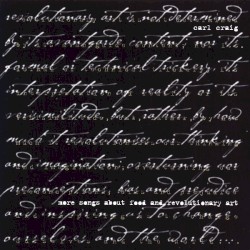 revolutionary art is not determined
carl craig
by its avant garde content, nor its
formal or technical trickery, its
interpretation of reality or its
verisimilitude, but, rather, by how
much it revolutionises our thinking
and imagination, overturning our
preconceptions, bias and prejudice
more songs about food and revolutionary art
and inspiring us to change
ourselves and the world....